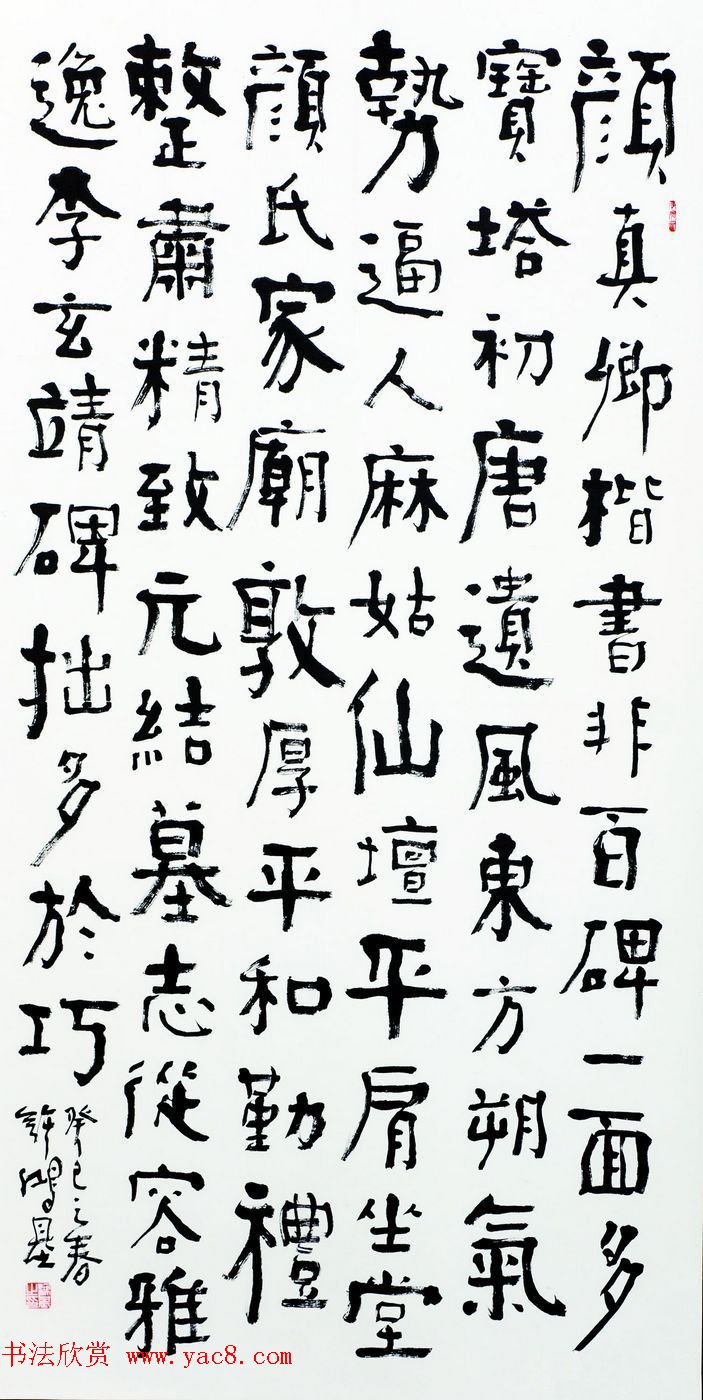 顔真卿楷書非百碑一面多
寶塔初唐遺風東方朔氣
勢逼人麻姑仙壇平肩坐堂
顔氏家廟敦厚平和勤禮
整肅精致元結墓志從容雅
逸李玄靖碑拙多於巧
癸巳之春
許鴻基
书法欣赏 www.yac8.com